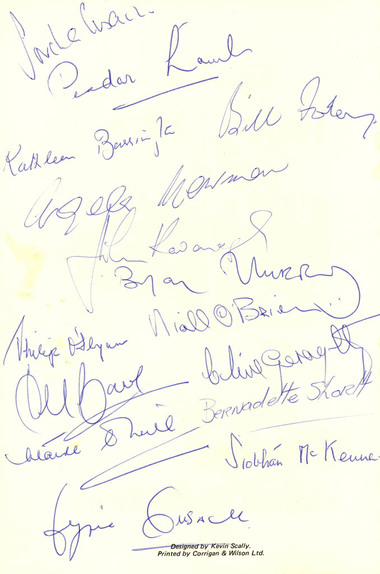 Sorcha Cusack
Peadar Lamb
Kathleen Barrington
Bill Foley
Angela Newman
John Kavanagh
Bryan Murray
Niall O'Brien
Philip O'Flynn
Clive Geraghty
Bernadette Shortt
Máire O'Neill
Siobhán McKenna
Cyril Cusack
Designed by Kevin Scally.
Printed by Corrigan & Wilson Ltd.